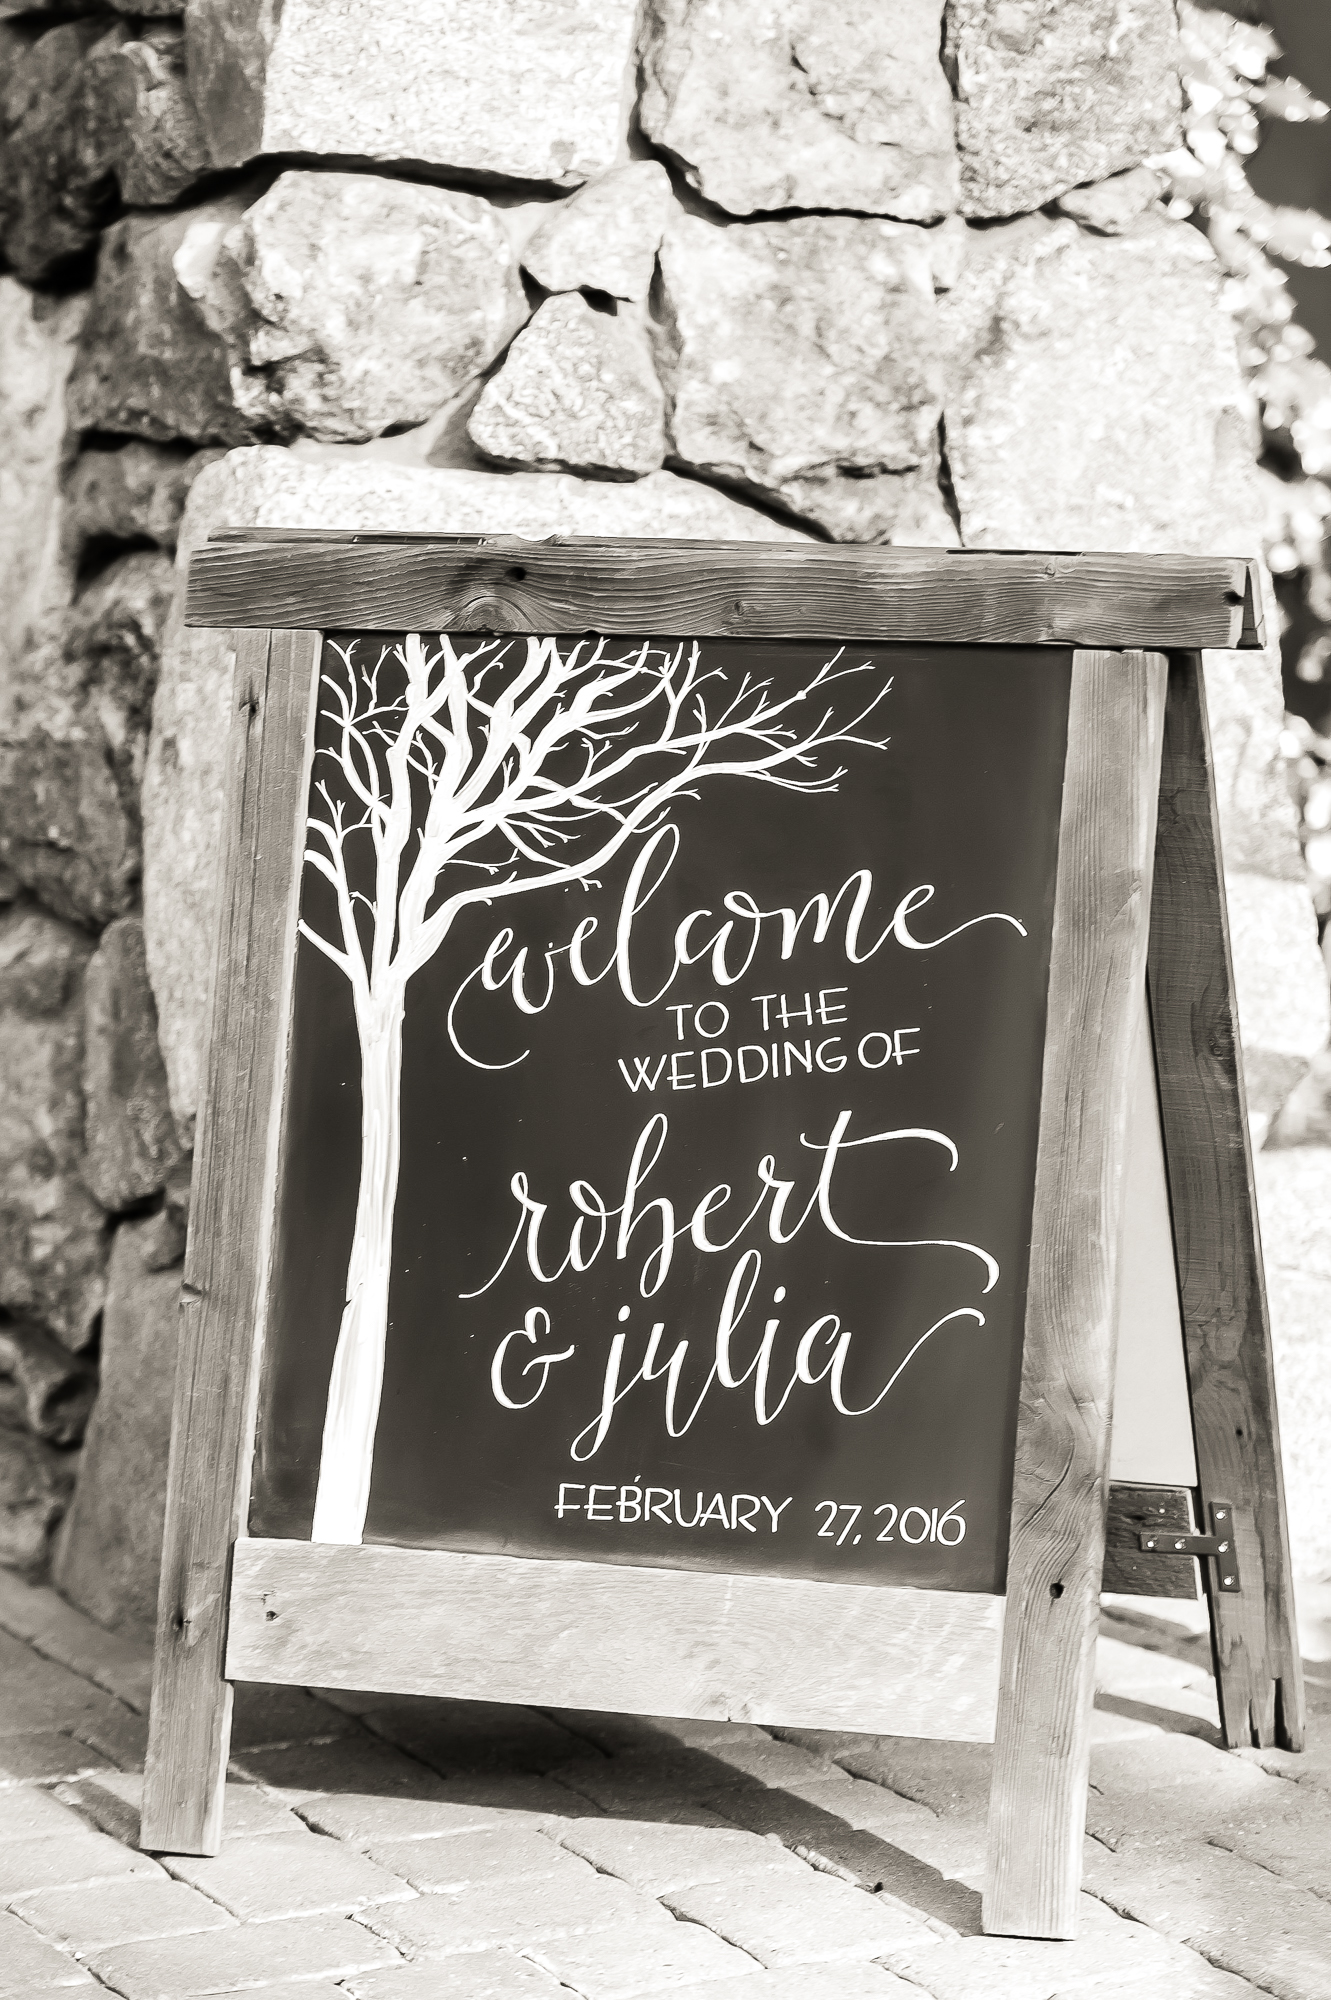 welcome
TO THE
WEDDING OF
robert
& julia
FEBRUARY 27, 2016